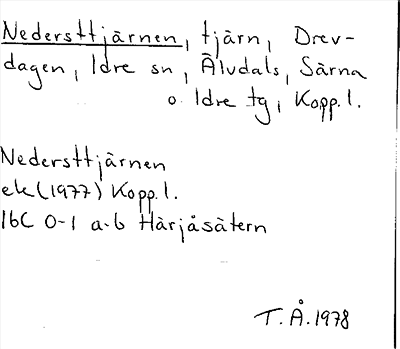 Nedersttjärnen, tjärn, Drev-
dagen, Idre sn, Älvdals, Särna
o Idre tg, Kopp. l.
Nedersttjärnen
ek (1977) Kopp. l.
16C 0-1 a-b Härjåsätern
T.Å. 1978